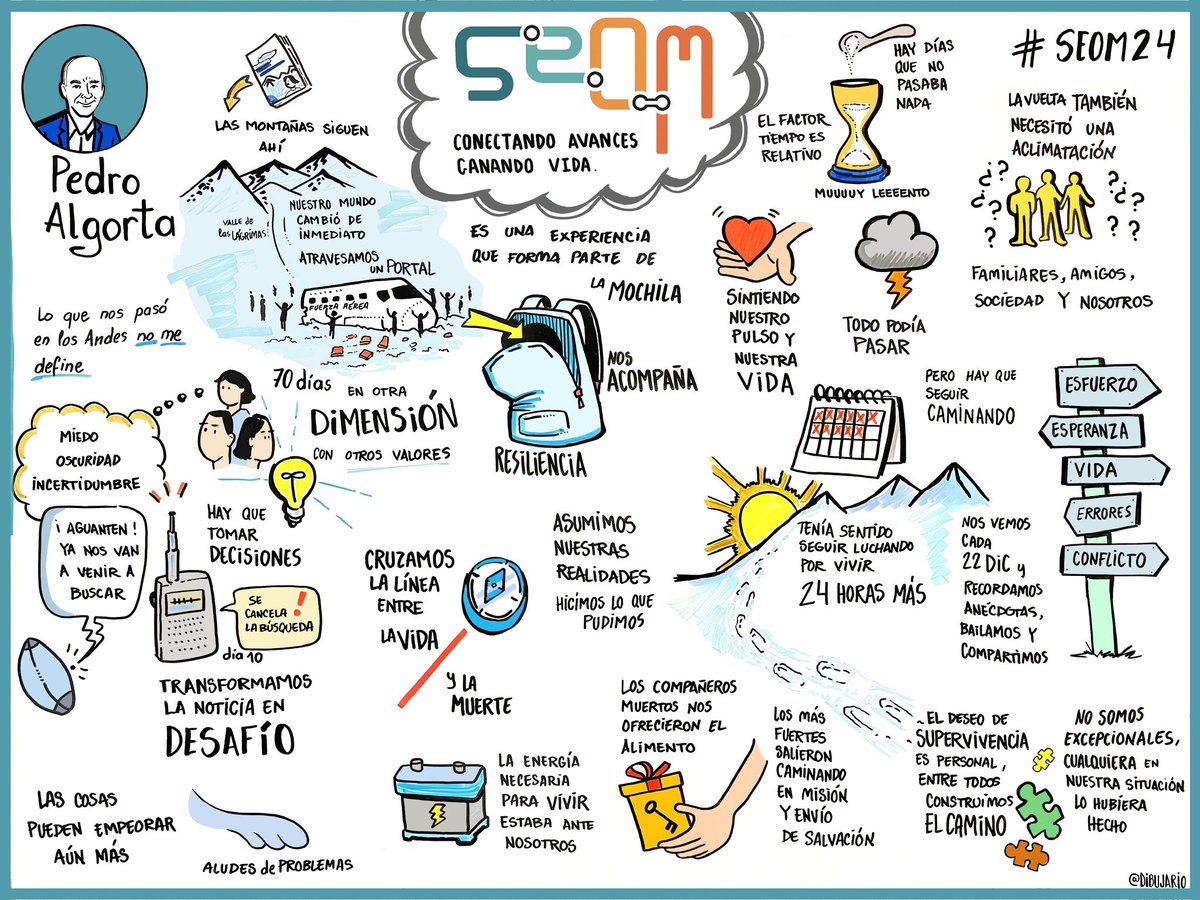 Pedro
Algorta
LAS MONTAÑAS SIGUEN
AHÍ
seom
CONECTANDO AVANCES
GANANDO VIDA.
EL FACTOR
TIEMPO ES
RELATIVO
HAY DÍAS
QUE NO
PASABA
NADA
MUUUUY LEEEENTO
# SEOM24
LA VUELTA TAMBIÉN
NECESITÓ UNA
ACLIMATACIÓN
FAMILIARES, AMIGOS,
SOCIEDAD Y NOSOTROS
VALLE de
las LÁGRIMAS!
NUESTRO MUNDO
CAMBIÓ DE
INMEDIATO
ATRAVESAMOS
UN PORTAL
FUERZA AÉREA
ES UNA EXPERIENCIA
QUE FORMA PARTE DE
LA MOCHILA
NOS
ACOMPAÑA
RESILIENCIA
SINTIENDO
NUESTRO
PULSO Y
NUESTRA
VIDA
TODO PODÍA
PASAR
Lo que nos pasó
en los Andes no me
define
70 días
EN OTRA
DIMENSIÓN
CON OTROS VALORES
MIEDO
OSCURIDAD
INCERTIDUMBRE
¡ AGUANTEN !
YA NOS VAN
A VENIR A
BUSCAR
HAY QUE
TOMAR
DECISIONES
SE
CANCELA
LA BÚSQUEDA
!
día 10
TRANSFORMAMOS
LA NOTICIA EN
DESAFÍO
CRUZAMOS
LA LÍNEA
ENTRE
LA VIDA
Y LA
MUERTE
ASUMIMOS
NUESTRAS
REALIDADES
HICIMOS LO QUE
PUDIMOS
PERO HAY QUE
SEGUIR
CAMINANDO
TENÍA SENTIDO
SEGUIR LUCHANDO
POR VIVIR
24 HORAS MÁS
NOS VEMOS
CADA
22 DIC y
RECORDAMOS
ANÉCDOTAS,
BAILAMOS Y
COMPARTIMOS
ESFUERZO
ESPERANZA
VIDA
ERRORES
CONFLICTO
LAS COSAS
PUEDEN EMPEORAR
AÚN MÁS
ALUDES de PROBLEMAS
LA ENERGÍA
NECESARIA
PARA VIVIR
ESTABA ANTE
NOSOTROS
LOS COMPAÑEROS
MUERTOS NOS
OFRECIERON EL
ALIMENTO
LOS MÁS
FUERTES
SALIERON
CAMINANDO
EN MISIÓN
Y ENVÍO
DE SALVACIÓN
EL DESEO DE
SUPERVIVENCIA
ES PERSONAL,
ENTRE TODOS
CONSTRUIMOS
EL CAMINO
NO SOMOS
EXCEPCIONALES,
CUALQUIERA EN
NUESTRA SITUACIÓN
LO HUBIERA
HECHO
@DIBUJARIO